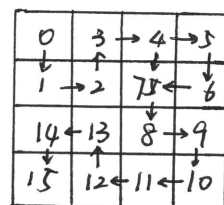 0 3 → 4 → 5
1 → 2 7 ← 6
14 ← 13 8 → 9
15 12 ← 11 ← 10